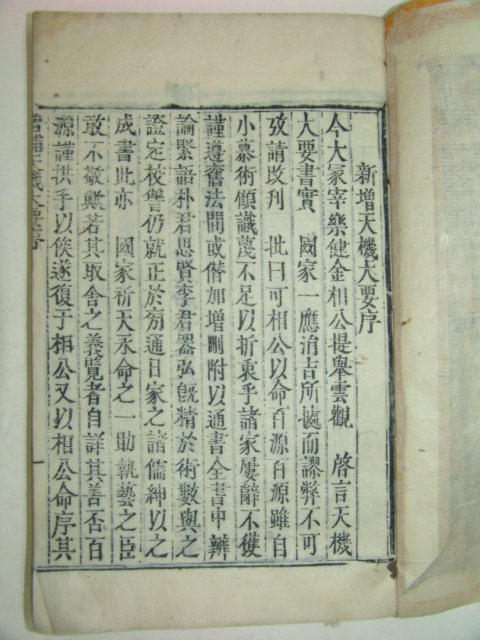 新增天機大要序
今大冢宰樂健金相公提舉雲觀 啓言天機
大要書實 國家一應涓吉所據而謬弊不可
攷請改刋 批曰可相公以命百源百源雖自
小慕術顧識蔑不足以折衷乎諸家屢辭不獲
謹遵舊法間或僭加增刪附以通書全書中辨
論緊語朴君思賢李君器弘旣精於術數與之
證定校讐仍就正於旁通日家之諸儒紳以之
成書此亦 國家祈天永命之一助執藝之臣
敢不敬歟若其取舍之義覽者自詳其善否百
源謹拱手以俟遂復于相公又以相公命序其
增補天機大要序 一